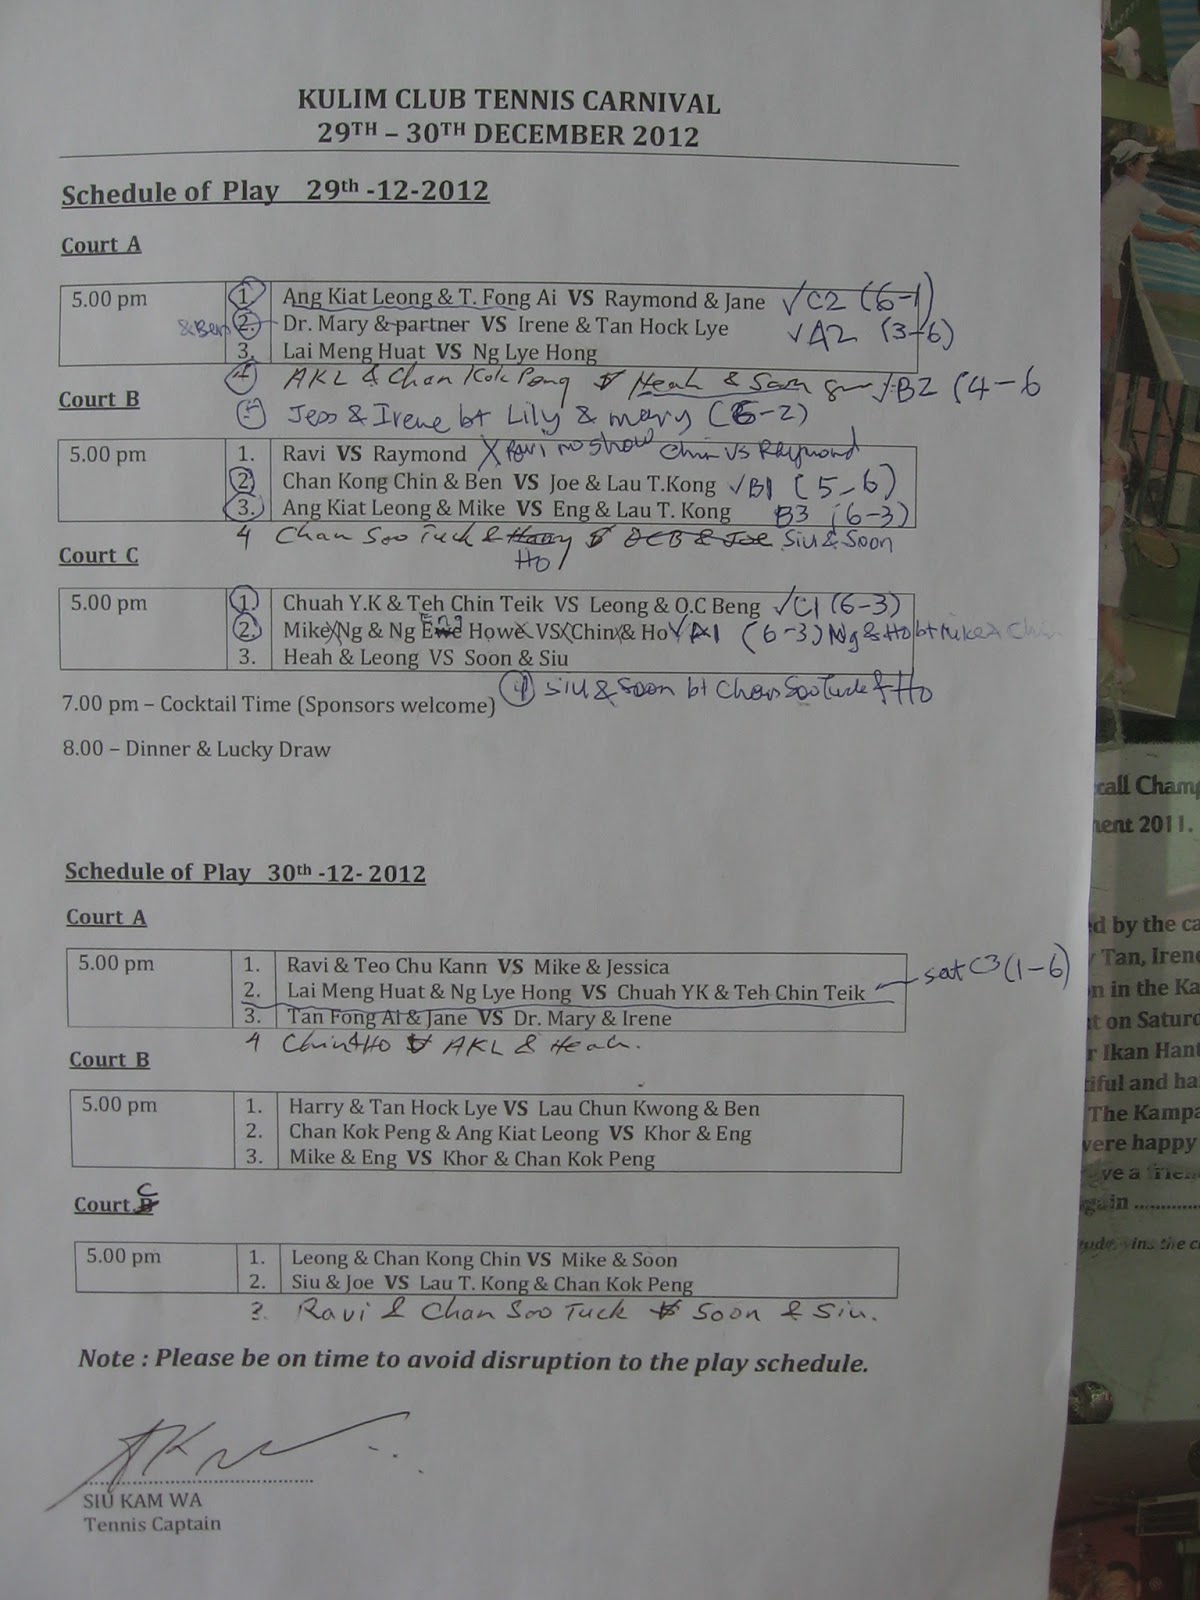 KULIM CLUB TENNIS CARNIVAL
29TH – 30TH DECEMBER 2012
Schedule of Play 29th -12-2012
Court A
5.00 pm 1. Ang Kiat Leong & T. Fong Ai VS Raymond & Jane ✓C2 (6-1)
&Ben 2. Dr. Mary & partner VS Irene & Tan Hock Lye ✓A2 (3-6)
3. Lai Meng Huat VS Ng Lye Hong
4 AKL & Chan Kok Peng VS Heah & Soon ✓B2 (4-6
Court B
5 Jess & Irene bt Lily & Mary (6-2)
5.00 pm 1. Ravi VS Raymond X Ravi no show Chin VS Raymond
2. Chan Kong Chin & Ben VS Joe & Lau T.Kong ✓B1 (5-6)
3. Ang Kiat Leong & Mike VS Eng & Lau T. Kong B3 (6-3)
4 Chan Soo Tuck & Harry VS OCB & Joe Siu & Soon
Ho
Court C
5.00 pm 1. Chuah Y.K & Teh Chin Teik VS Leong & O.C Beng ✓C1 (6-3)
2. Mike Ng & Ng Ewe Howe VS Chin & Ho ✓A1 (6-3) Ng & Ho bt Mike & Chin
3. Heah & Leong VS Soon & Siu
4 Siu & Soon bt Chan Soo Tuck & Ho
7.00 pm – Cocktail Time (Sponsors welcome)
8.00 – Dinner & Lucky Draw
Schedule of Play 30th -12- 2012
Court A
5.00 pm 1. Ravi & Teo Chu Kann VS Mike & Jessica
2. Lai Meng Huat & Ng Lye Hong VS Chuah YK & Teh Chin Teik sat C3 (1-6)
3. Tan Fong Ai & Jane VS Dr. Mary & Irene
4 Chin & Ho VS AKL & Heah.
Court B
5.00 pm 1. Harry & Tan Hock Lye VS Lau Chun Kwong & Ben
2. Chan Kok Peng & Ang Kiat Leong VS Khor & Eng
3. Mike & Eng VS Khor & Chan Kok Peng
Court B C
5.00 pm 1. Leong & Chan Kong Chin VS Mike & Soon
2. Siu & Joe VS Lau T. Kong & Chan Kok Peng
3. Ravi & Chan Soo Tuck VS Soon & Siu.
Note : Please be on time to avoid disruption to the play schedule.
SIU KAM WA
Tennis Captain
call Champ
ent 2011.
d by the ca
Tan, Irene
n in the Ka
t on Saturd
r Ikan Hant
tiful and ha
The Kampa
were happy
ve a frien
gain ...........
wins the c